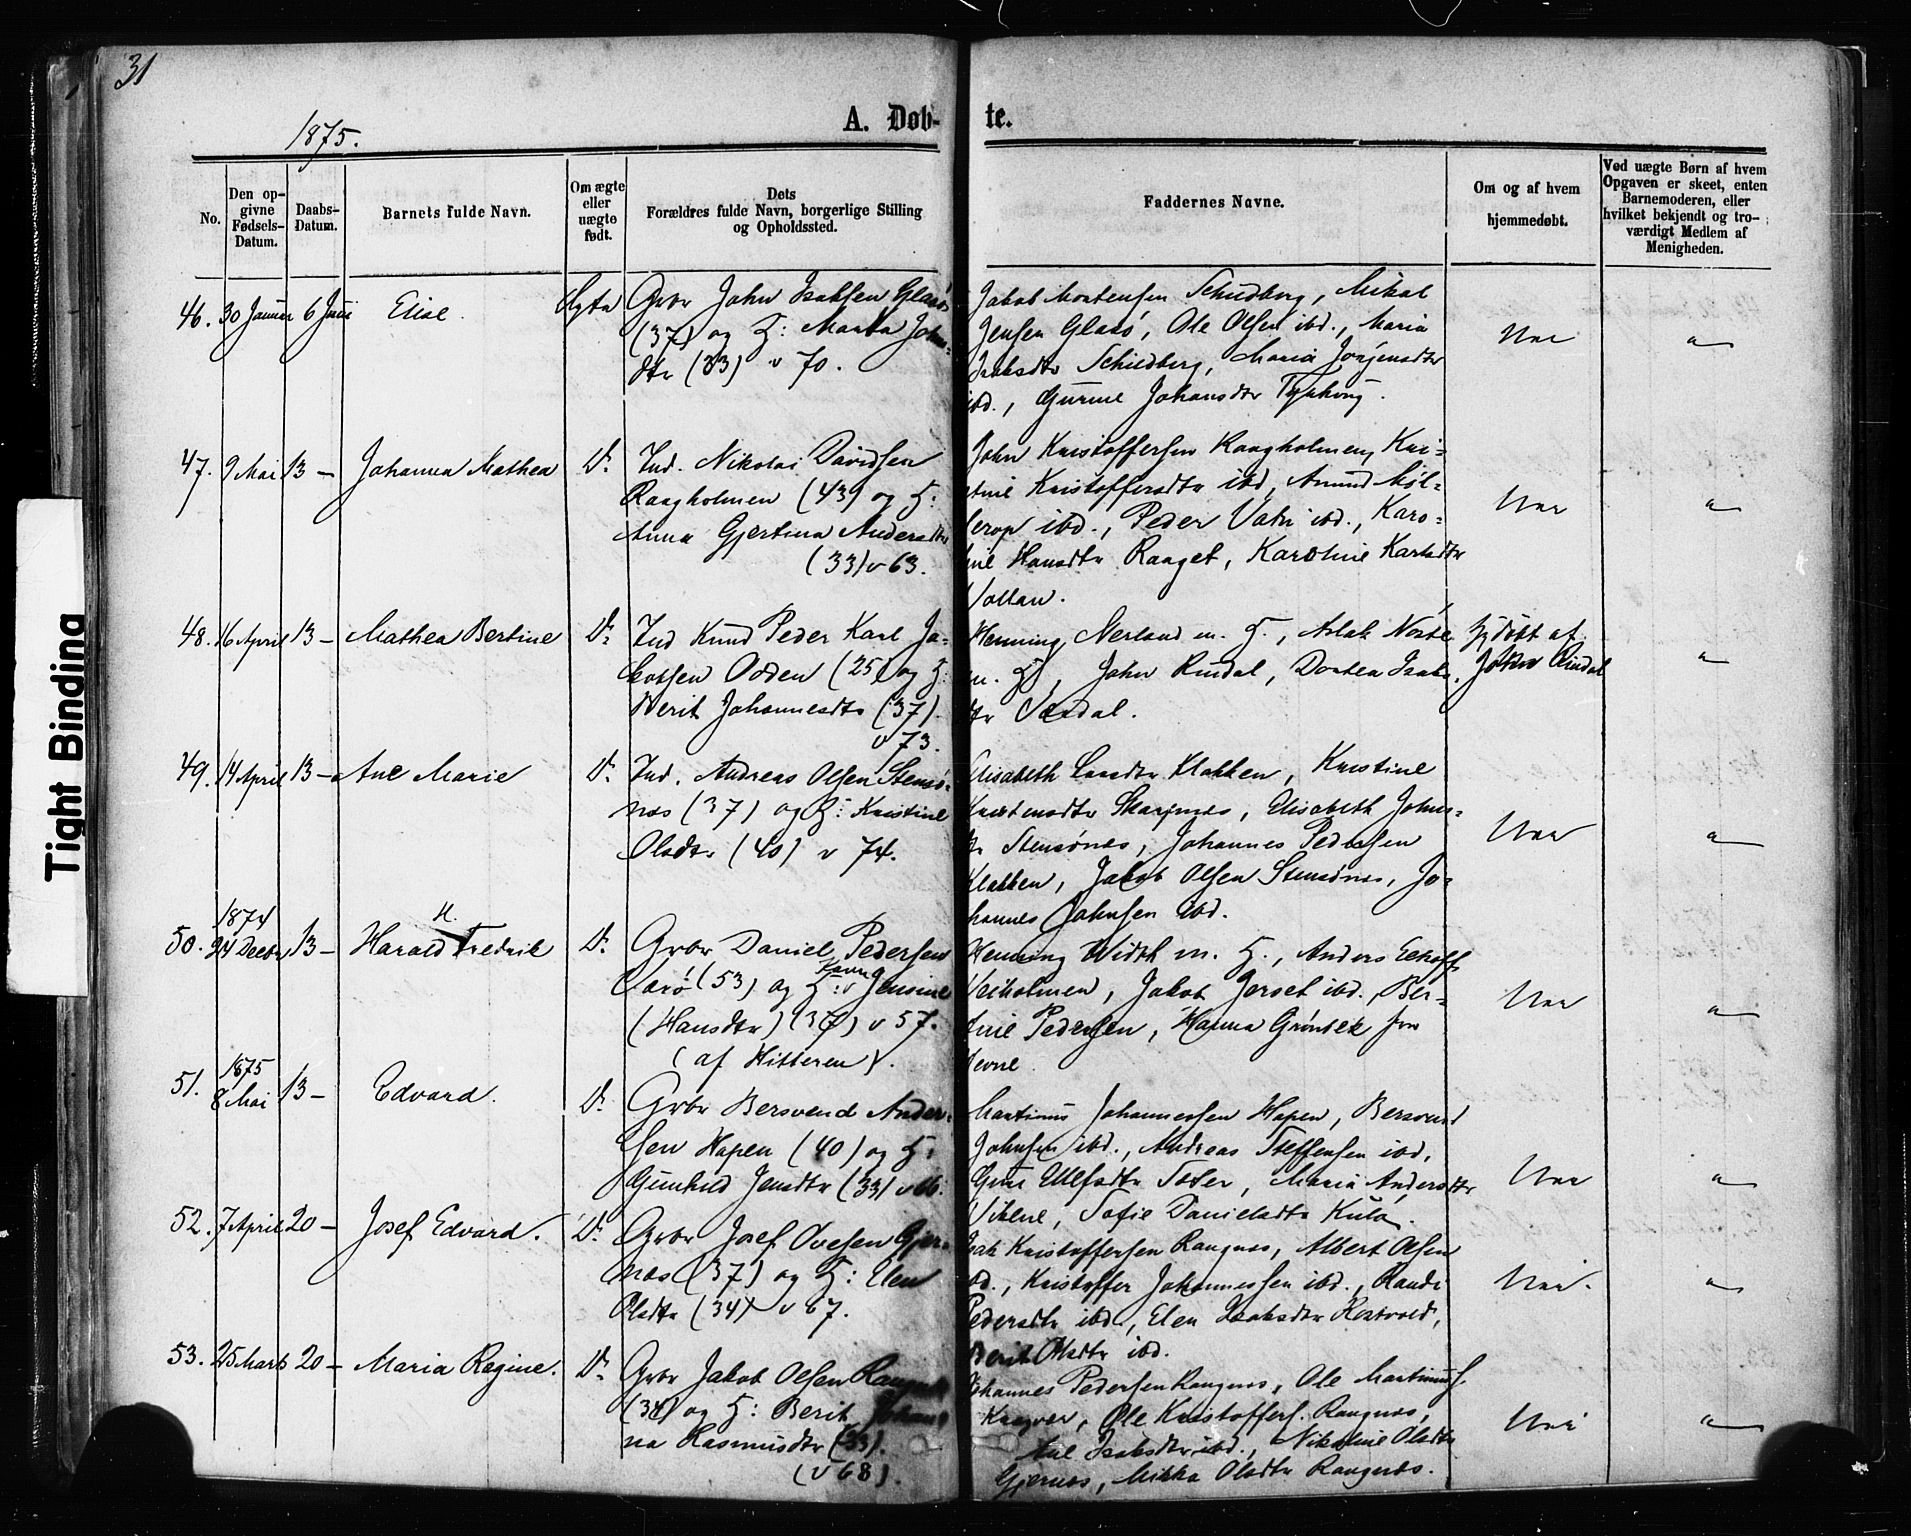 31
1875.
A. Døb-
te.
No.
Den op-
givne
Fødsels-
Datum.
Daabs-
Datum.
Barnets fulde Navn.
Om ægte
eller
uægte
født.
Dets
Forældres fulde Navn, borgerlige Stilling
og Opholdssted.
Faddernes Navne.
Om og af hvem
hjemmedøbt.
Ved uægte Børn af hvem
Opgaven er skeet, enten
Barnemoderen, eller
hvilket bekjendt og tro-
værdigt Medlem af
Menigheden.
46. 30 Januar 6 Juni Elise. Ægte Grbr John Isaksen Glasø
(37) og H: Marta John
dtr (33) v 70.
Jakob Mortensen Schudberg, Mikal
Jensen Glasø, Ole Olsen ibd., Maria
Isaksdtr Schudberg, Maria Jørgensdtr
ibd., Gurine Johansdtr
47. 9 Mai 13 – Johanna Mathea Do Ind. Nikolai Davidsen
Raagholmen (43) og H.
Anna Gjertina Andersdtr
(33) v 63.
John Kristoffersen Raagholmen, Kri-
stine Kristoffersdtr ibd, Amund Møl-
lerop ibd., Peder Vatn ibd., Karo-
line Hansdtr Raaget, Karoline Karlsdtr
Vollan.
48. 16 April 13 – Mathea Bertine Do Ind Knud Peder Karl Ja-
kobsen Odden (25) og H:
Berit Johannesdtr (37)
v 73.
Henning Nerland m. H., Aslak
m. H, John Rindal, Dortea Isaks
dtr
Hjdøbt af
John Rindal
49. 14 April 13 – Ane Marie Do Ind. Andreas Olsen Stensø-
næs (37) og H: Kristine
Olsdtr (40) v 74.
Elisabeth Larsdtr Klakken, Kristine
Kristensdtr Skarpnæs, Elisabeth Johns-
dtr Stensønes, Johannes Pedersen
Klakken, Jakob Olsen Stensønes, Jo-
hannes Johnsen ibd.
1874
50. 24 Decbr 13 – Harald H. Fredrik Do Grbr Daniel Pedersen
(53) og H: Karen Jensine
(Hansdtr) (37) v 57.
(af Hitteren).
Henning Width m. H., Anders Eckoff
Veiholmen, Jakob Jerset ibd., Ber-
tine Pedersen, Hanna
Hevne
1875
51. 8 Mai 13 – Edvard. Do Grbr Bersvend Ander-
sen Hapen (40) og H:
Gunhild Jensdtr (33)
Martinus Johannessen Hapen, Bersvend
Johnsen ibd., Andreas Steffensen ibd,
Maria Andersdtr
Vikene, Sofie Danielsdtr Kulø.
52. 7 April 20 – Josef Edvard. Do Grbr Josef Ovesen Gjer-
næs (37) og H: Elen
Olsdtr (34) v 67.
Isak Kristoffersen Rangnæs, Albert Olsen
ibd., Kristoffer Johannessen ibd., Randi
Pedersdtr ibd., Elen Isaksdtr
Berit Olsdtr ibd.
53. 25 Marts 20 – Maria Regine. Do Grbr Jakob Olsen Rangnæs
(34) og H: Berit Johan
na Rasmusdtr (33).
(v 68).
Johannes Pedersen Rangnæs, Ole Martinus.
Ole Kristoffers. Rangnæs,
Isaksdtr ibd., Nikoline Olsdtr
Gjernes, Mikka Olsdtr Rangnæs.
Tight Binding